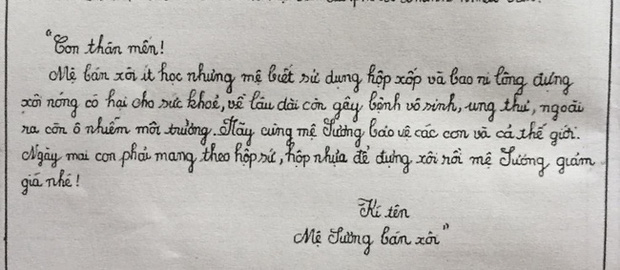 "Con thân mến!
Mệ bán xôi ít học nhưng mệ biết sử dụng hộp xốp và bao ni lông đựng
xôi nóng có hại cho sức khoẻ, về lâu dài còn gây bệnh vô sinh, ung thư, ngoài
ra còn ô nhiễm môi trường. Hãy cùng mệ Sương bảo vệ các con và cả thế giới.
Ngày mai con phải mang theo hộp sứ, hộp nhựa để đựng xôi rồi mệ Sương giảm
giá nhé!
Kí tên
Mệ Sương bán xôi"